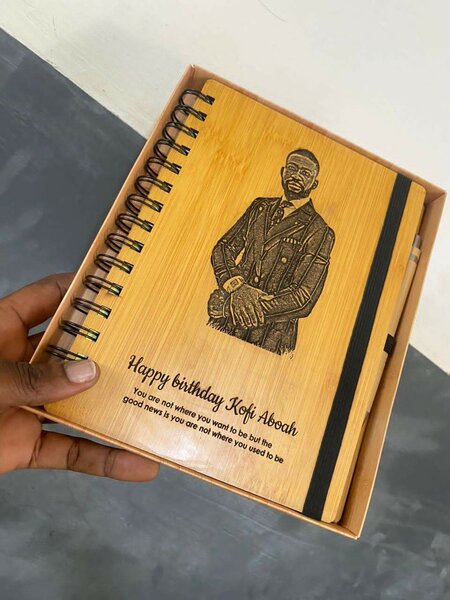 Happy birthday Kofi Aboah
You are not where you want to be but the
good news is you are not where you used to be